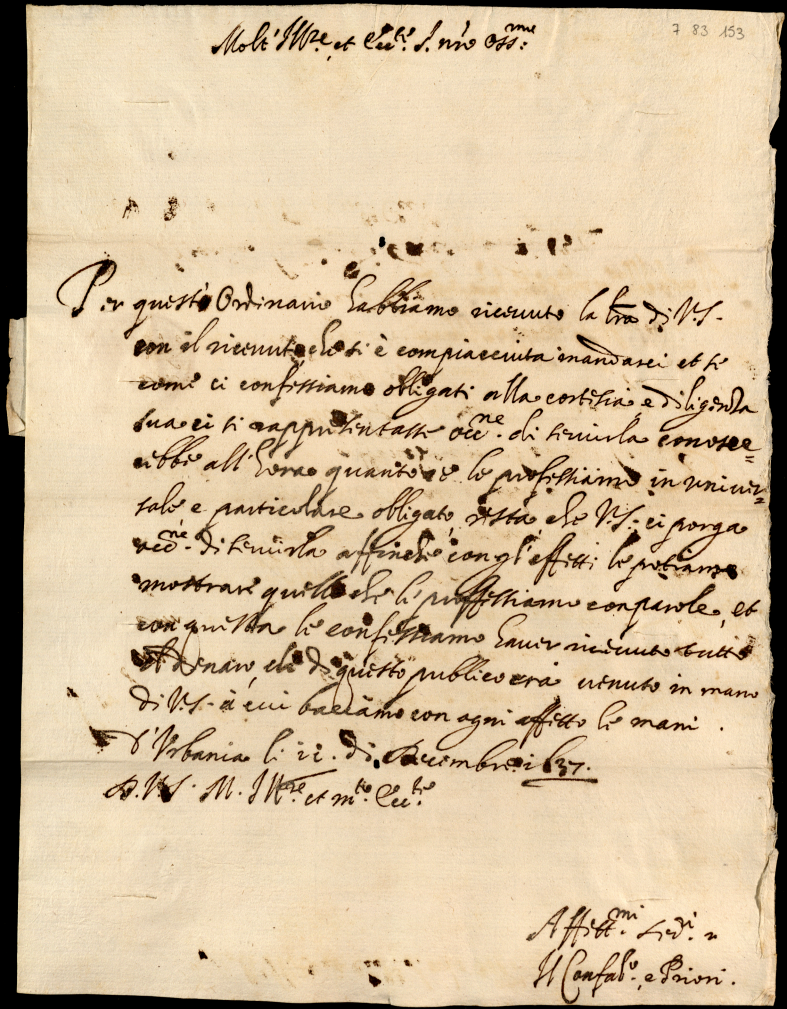 7 83 153
Molt' Ill.re et Ecc.te S. nro Oss.mo
Per questo Ordinario habbiamo riceuuto la lra di V.S.
con il riceuuto che si è compiacciuta mandarci et si
come ci confessiamo obligati alla cortesia, e diligenza
sua ci si rappresentasse occ.ne di seruirla conosce=
rebbe all'hora quanto se le professiamo in uniuer=
sale e particolare obligato, resta che V.S. ci porga
occ.ne di seruirla affinche con gl'effetti le potiamo
mostrare quello che le professiamo con parole, et
con questa le confessiamo hauer riceuuto tutto
il denaro, che di questo publico era uenuto in mano
di V.S. à cui bacciamo con ogni affetto le mani.
d'Urbania li 12. di Decembre 1637.
D.V.S. M. Ill.re et m.to Ecc.te
Affett.mi
Il Confal.re, e Priori.